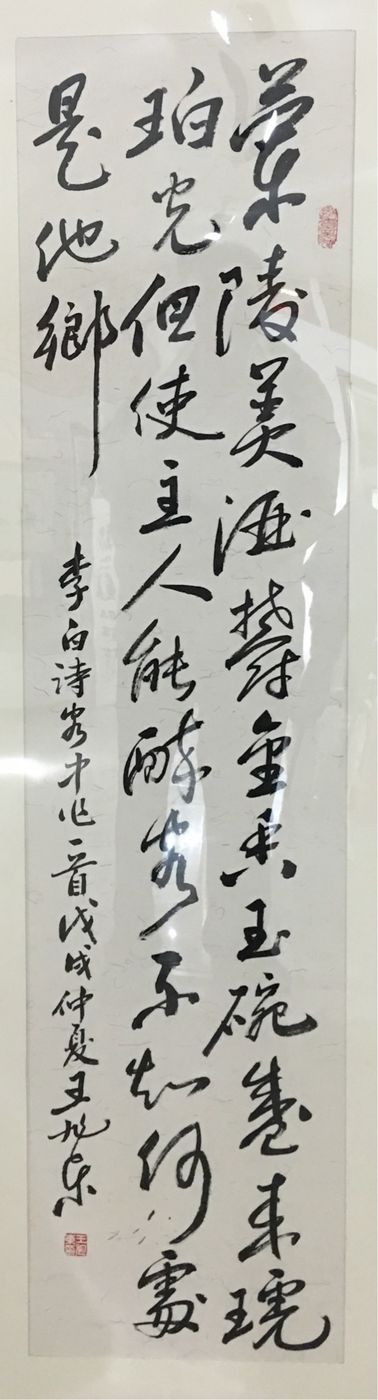 蘭陵美酒鬱金香玉碗盛來琥
珀光但使主人能醉客不知何處
是他鄉
李白詩客中作一首戊戌仲夏王旭東